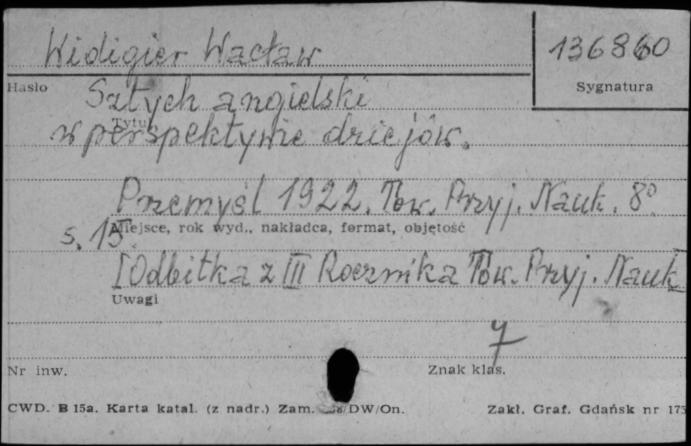 Widigier Wacław
136860
Hasło
Sygnatura
Sztych angielski
Tytuł
w perspektywie dziejów.
Przemyśl 1922. Tow. Przyj. Nauk. 8°
Miejsce, rok wyd., nakładca, format, objętość
s. 15.
[Odbitka z III Rocznika Tow. Przyj. Nauk
Uwagi
7
Nr inw.
Znak klas.
CWD. B 15a. Karta katal. (z nadr.) Zam. /DW/On.
Zakł. Graf. Gdańsk nr 173